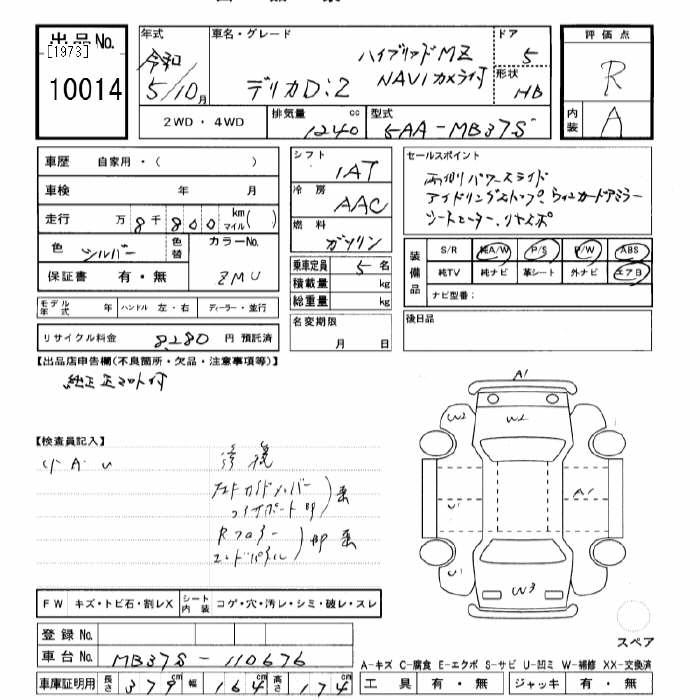 出品No.
[1973]
10014
年式
令和
5/10月
車名・グレード
デリカD:2
ハイブリッドMZ
NAVIカメラ付
ドア
5
形状
HB
2WD・4WD
排気量
1240
cc
型式
5AA-MB37S
評価点
R
内装
A
車歴 自家用・( )
車検 年 月
走行 万8千800 km マイル( )
色 シルバー 色替
カラーNo.
ZMU
保証書 有・無
モデル年式 年 ハンドル 左・右 ディーラー・並行
リサイクル料金 8280 円 預託済
シフト
1AT
冷房
AAC
燃料
ガソリン
乗車定員 5 名
積載量 kg
総重量 kg
名変期限
月 日
セールスポイント
両側パワースライド
アイドリングストップ、ウインカードアミラー
シートヒーター、リヤスポ
装備品
S/R 純A/W P/S P/W ABS
純TV 純ナビ 革シート 外ナビ エアB
ナビ型番:
後日品
【出品店申告欄(不良箇所・欠品・注意事項等)】
純正マット付
【検査員記入】
小A U
修復
コアサポート部
Rフロアー
エンドパネル
部
A1
W2
W2
A1
U1
U1
W3
スペア
FW キズ・トビ石・割レX シート内装 コゲ・穴・汚レ・シミ・破レ・スレ
登録No.
車台No. MB37S-110676
車庫証明用 長さ 379cm 幅 164cm 高さ 174cm
A-キズ C-腐食 E-エクボ S-サビ U-凹ミ W-補修 XX-交換済
工具 有・無 ジャッキ 有・無